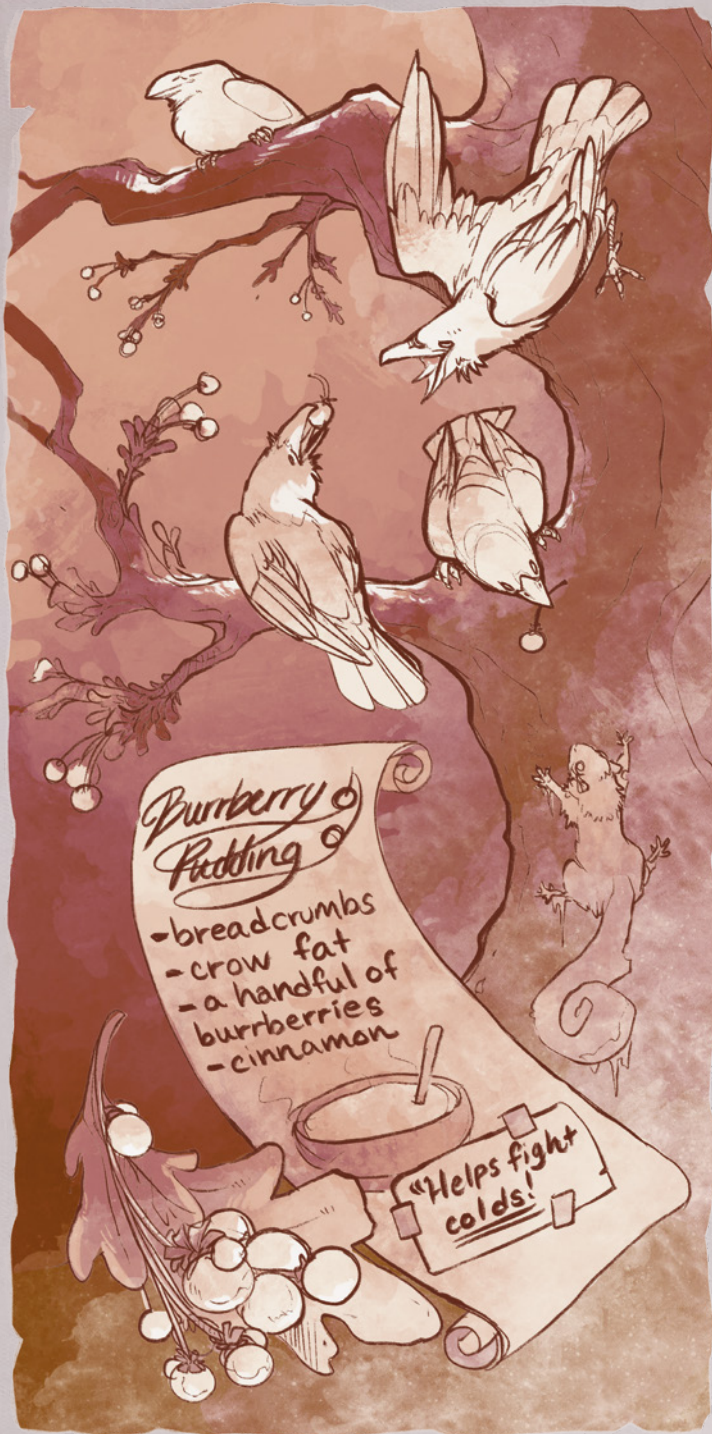 Burrberry
Pudding
-breadcrumbs
-crow fat
-a handful of
burrberries
-cinnamon
"Helps fight
colds!